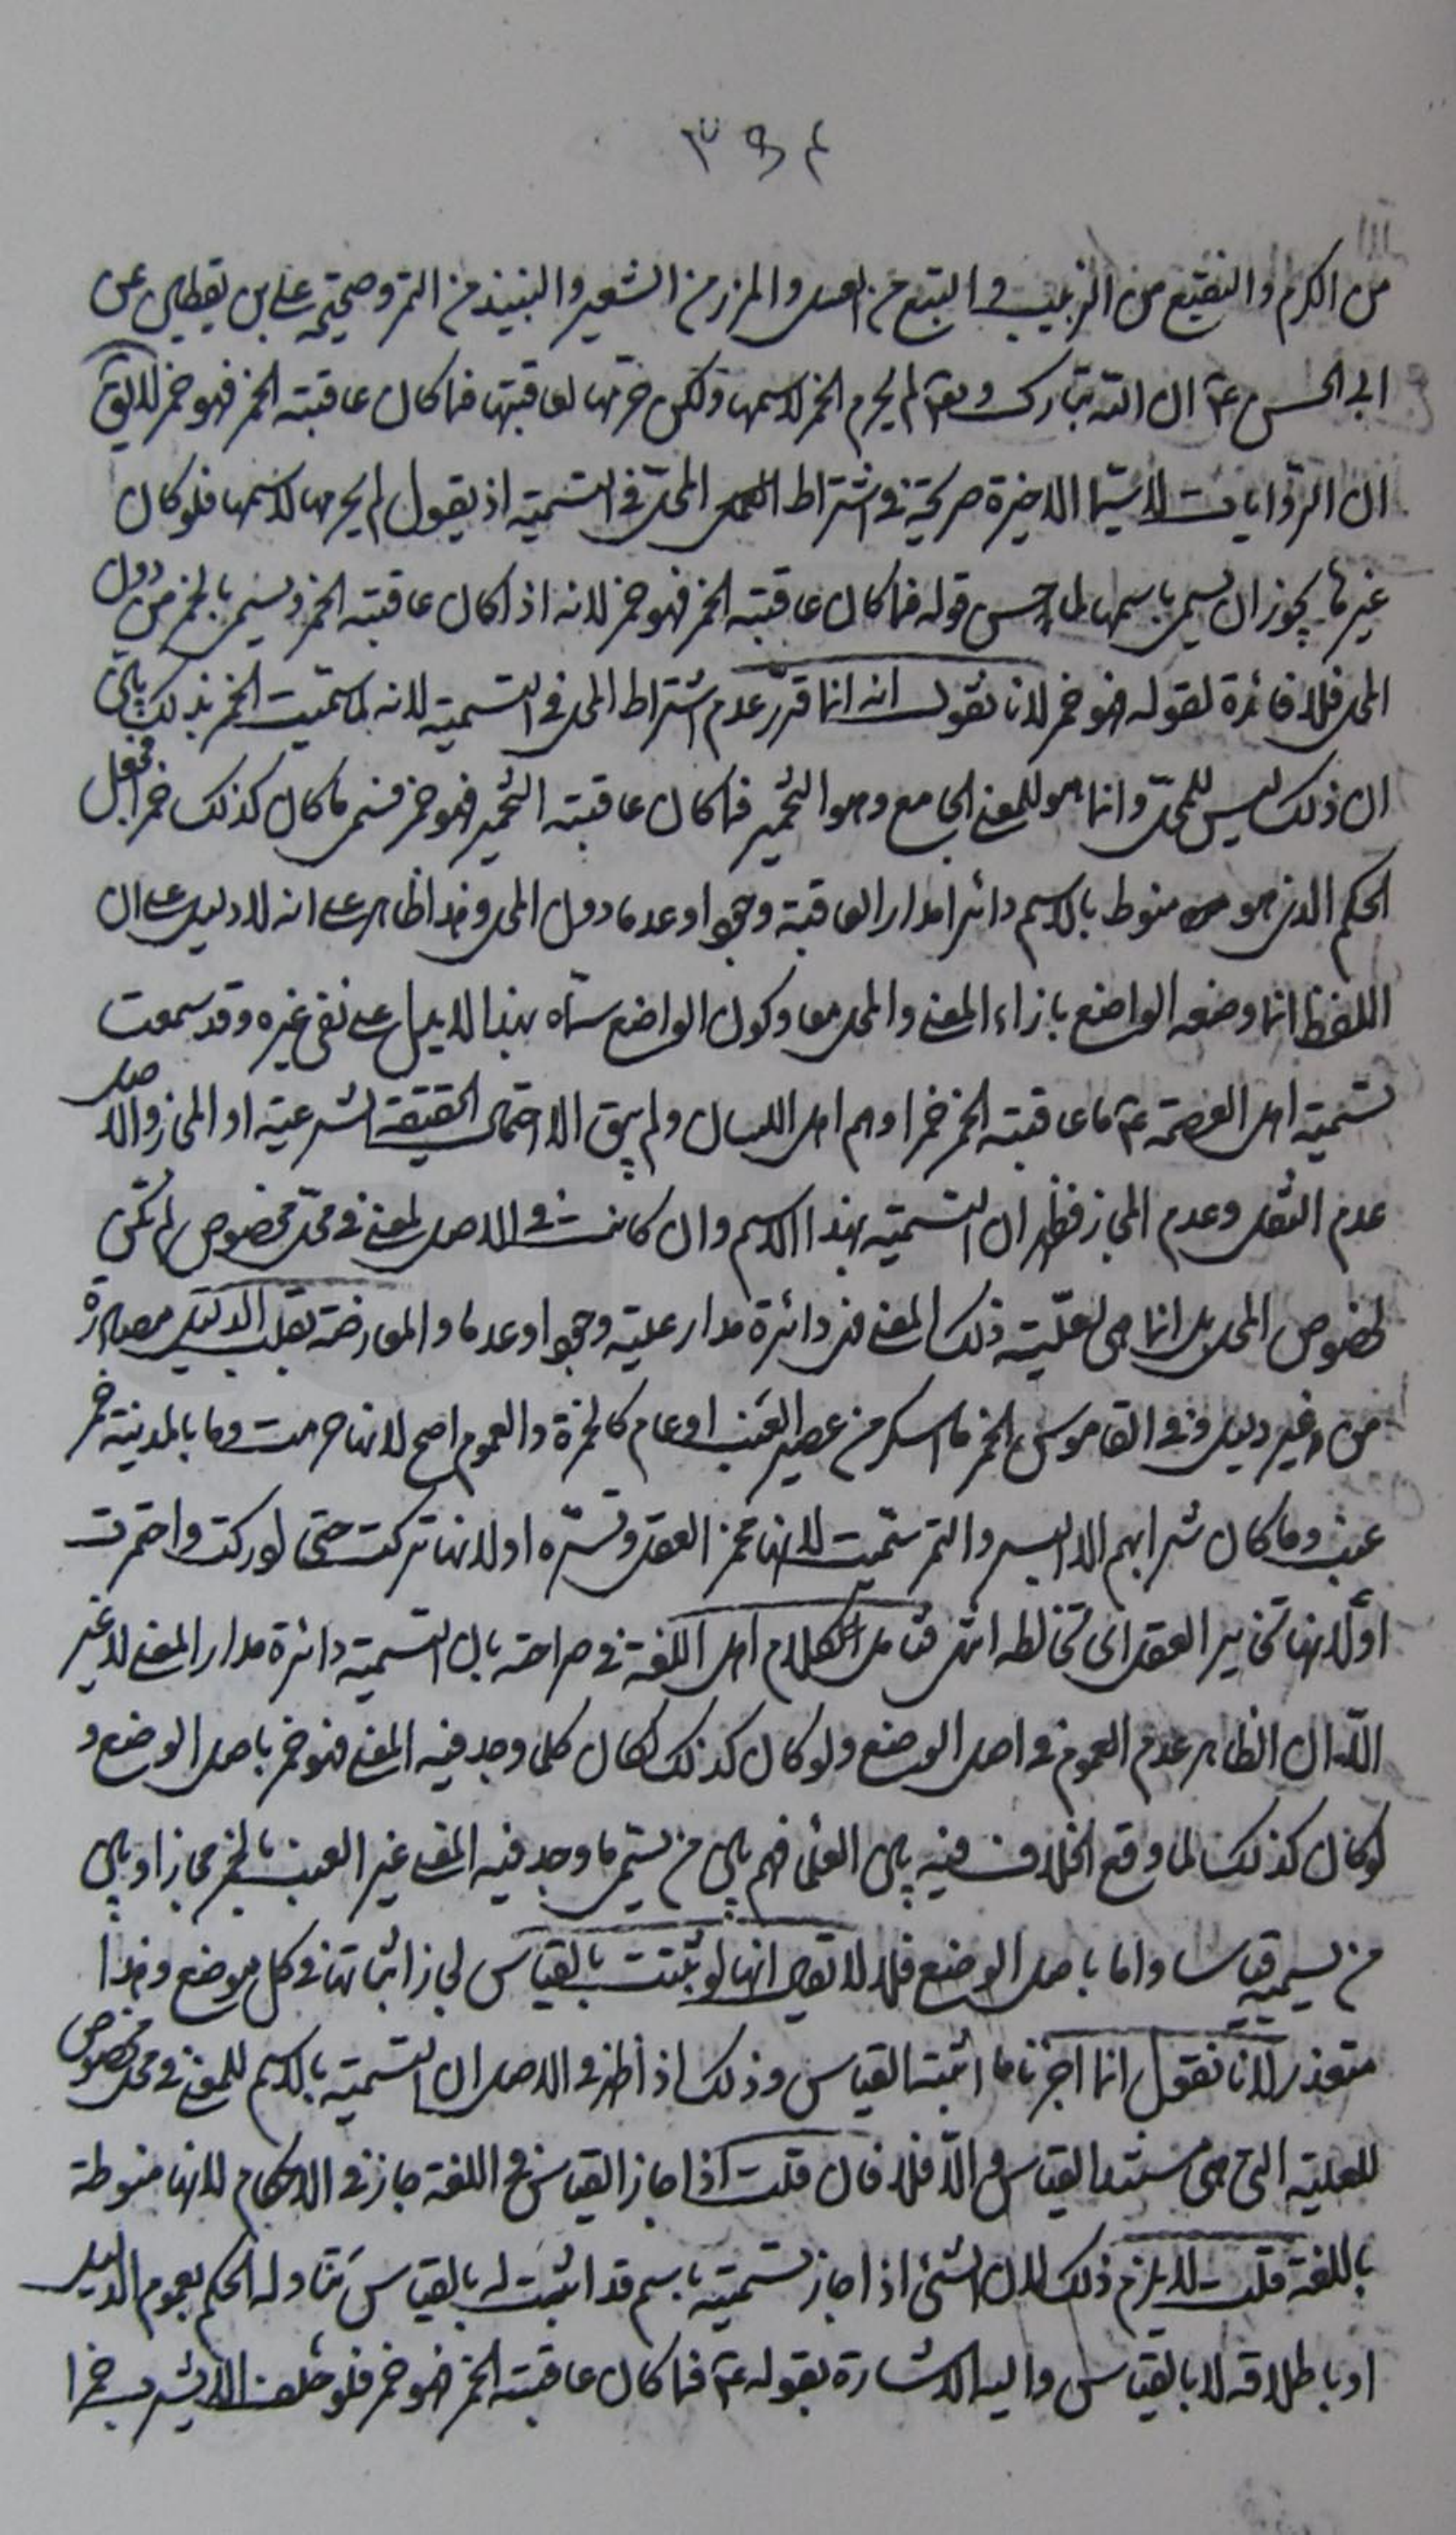 ٣٩٤
من الكرم والنقيع من الزبيب والبتع من العسل والمزر من الشعير والنبيذ من التمر وصحيحة علي بن يقطين عن
ابي الحسن ع ان الله تبارك وتعه لم يحرم الخمر لاسمها ولكن حرمها لعاقبتها فما كان عاقبته الخمر فهو خمر لا يق
ان الروايات لا سيما الاخيرة صريحة في اشتراط المحل في التسمية اذ يقول لم يحرمها لاسمها فلو كان
غيرها يجوز ان يسمى باسمها لما حسن قوله فما كان عاقبته الخمر فهو خمر لانه اذا كان عاقبته الخمر ويسمى بالخمر من دون
المحل فلا فائدة لقوله فهو خمر لانا نقول انه انما قرر عدم اشتراط المحل في التسمية لانه لما سميت الخمر بذلك بين
ان ذلك ليس للمحل وانما هو للمعنى الجامع وهو التخمير فما كان عاقبته التخمير فهو خمر فسمى ما كان كذلك خمرا فجعل
الحكم الذي هو منوط بالاسم دائرا مدار العاقبة وجودا وعدما دون المحل وهذا ظاهر على انه لا دليل على ان
اللفظ انما وضعه الواضع بازاء المعنى والمحل معا وكون الواضع سماه بهذا لا يدل على نفي غيره وقد سمعت
تسمية اهل العصمة ع ما عاقبته الخمر خمرا وهم اهل اللسان ولم يبق الا احتمال الحقيقة الشرعية او المجاز والاصل
عدم النقل وعدم المجاز فظهر ان التسمية بهذا الاسم وان كانت في الاصل لمعنى في محل مخصوص لم تكن
لخصوص المحل بل انما هي لعلية ذلك المعنى فهي دائرة مدار علية وجودا وعدما والمعارضة بقلب الدليل مصادرة
من غير دليل وفي القاموس الخمر ما اسكر من عصير العنب او عام كالخمرة والعموم اصح لانها حرمت وما بالمدينة خمر
عنب وما كان شرابهم الا البسر والتمر سميت لانها تخمر العقل وتستره او لانها تركت حتى ادركت واختمرت
او لانها تخامر العقل اي تخالطه انتهى فتامل كلام اهل اللغة في صراحته بان التسمية دائرة مدار المعنى لا غير
الا ان الظاهر عدم العموم في اصل الوضع ولو كان كذلك لكان كلما وجد فيه المعنى فهو خمر باصل الوضع و
لو كان كذلك لما وقع الخلاف فيه بين العلماء فهم بين من يسمى ما وجد فيه المعنى غير العنب بالخمر مجازا وبين
من يسميه قياسا واما باصل الوضع فلا لا يقال انها لو ثبتت بالقياس لجاز اثباتها في كل موضع وهذا
متعذر لانا نقول انما اجزنا ما اثبته القياس وذلك اذا ظهر في الاصل ان التسمية بالاسم للمعنى في محل مخصوص
للعلية التي هي مستند القياس والا فلا فان قلت اذا جاز القياس في اللغة جاز في الاحكام لانها منوطة
باللغة قلت لا يلزم ذلك لان الشئ اذا جاز تسميته باسم قد اثبت له بالقياس تناوله الحكم بعموم الدليل
او باطلاقه لا بالقياس واليه الاشارة بقوله ع فما كان عاقبته الخمر فهو خمر فلو حلف الا يشرب خمرا